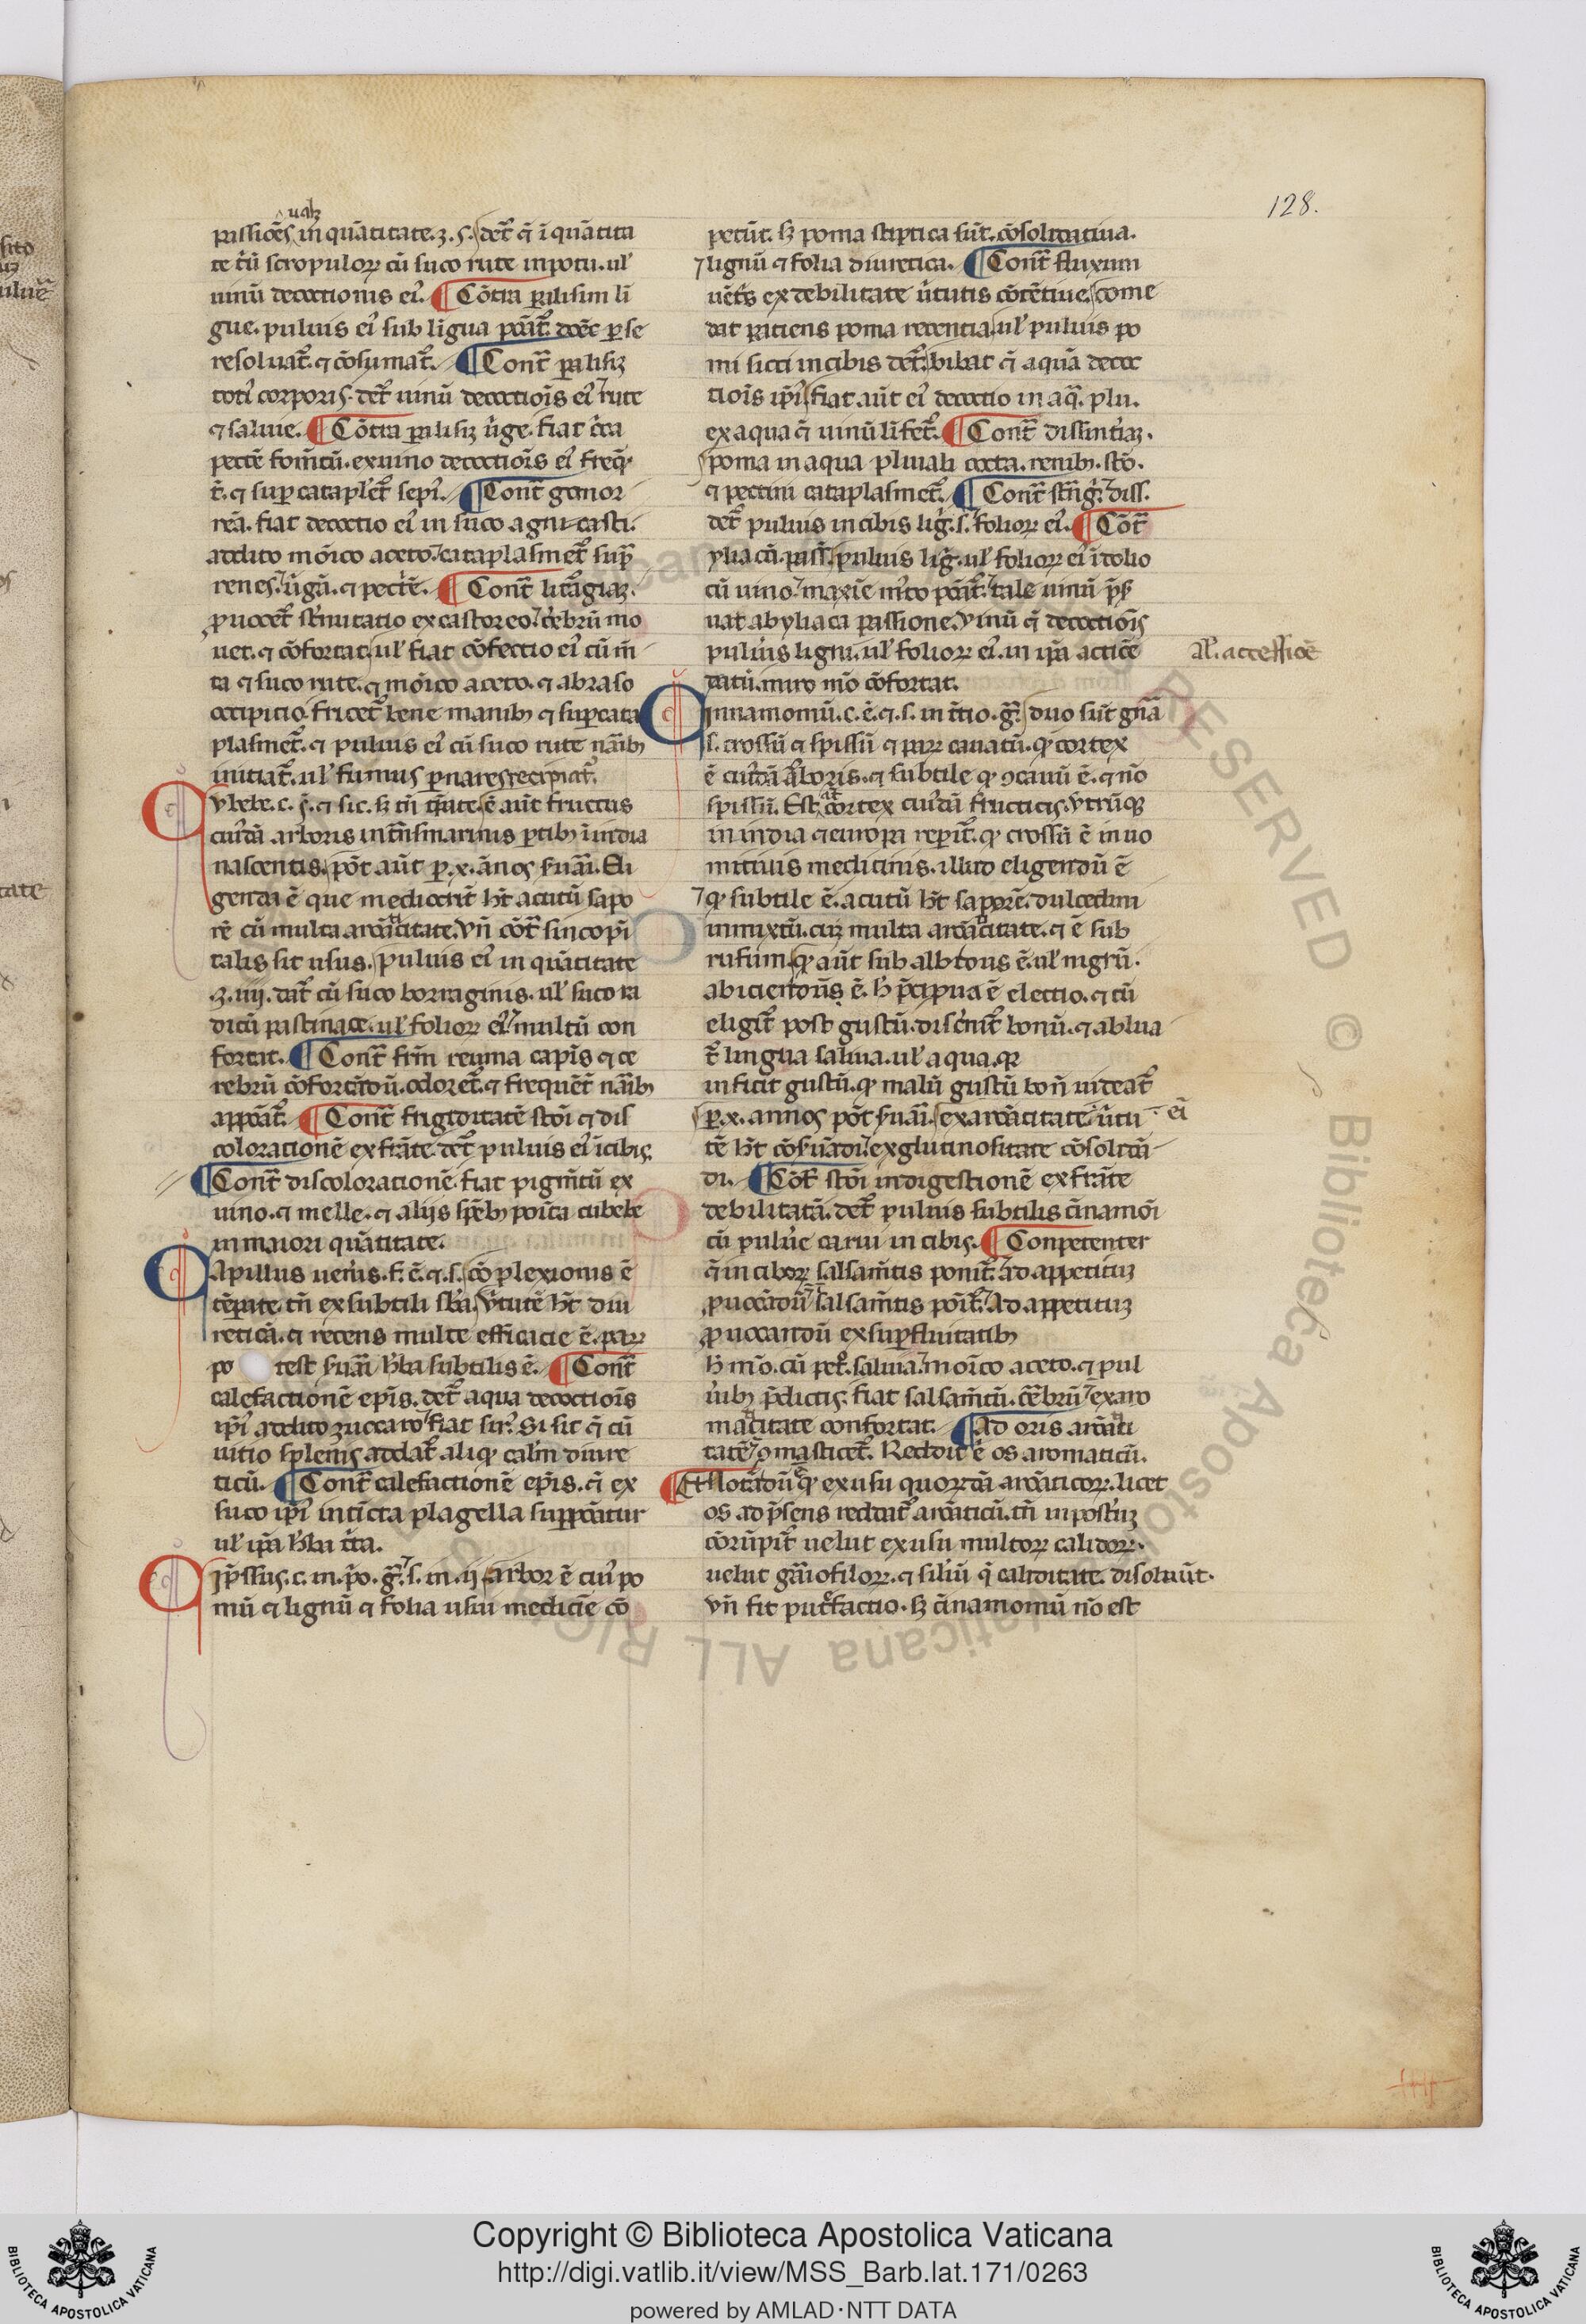 128.
uł
passiões in quãtitate.ʒ.s. det̃ q̃ ĩ quãtita
te t̃ũ scropuloꝝ cũ suco rute in potu. ul̃
uinũ decoctionis ei᷒. ¶ Cõtra ꝑalisim li
gue. puluis ei᷒ sub ligua põat᷑. donec ꝑ se
resoluat᷑. ⁊ cõsumat᷑. ¶ Cont̃ ꝑalisiꝫ
toti᷒ corporis. det᷑ uinũ decoctiõis ei᷒ ⁊ rute
⁊ saluie. ¶ Cõtra ꝑalisiꝫ ũge. fiat c̃ca
pectẽ fom̃tũ. ex uino decoctiõis ei᷒ freq̃
t̃. ⁊ suꝑ cataplet᷑ sepi᷒. ¶ Cont̃ gomor
reã. fiat decoctio ei᷒ in suco agni casti.
addito mõico aceto. ⁊ cataplasmet᷑ supᷓ
renes. ⁊ ũgã. ⁊ pectẽ. ¶ Cont̃ litᷓgiaꝫ.
ꝓuocet᷑ st̃nutatio ex castoreo. ⁊ c̃ebrũ mo
uet. ⁊ cõfortat. ul̃ fiat cõfectio ei᷒ cũ m̃
ta ⁊ suco rute. ⁊ mõico aceto. ⁊ abraso
occipitio fricet᷑ bene manibꝫ ⁊ suꝑcata
plasmet᷑. ⁊ puluis ei᷒ cũ suco rute narĩbꝫ
initiat᷑. ul̃ fumus ꝑ nares recipiat᷑.
Cubebe. c. s̃. ⁊ sic. sꝫ tñ tꝑate. ẽ aũt fructus
cui᷒dã arboris in tᷓnsmarinis ꝑtibꝫ ĩ india
nascentis. põt aũt ꝑ .x. ãnos s̃uari. Eli
genda ẽ que mediocrit᷑ ht̃ acutũ sapo
rẽ cũ multa aromaticitate. vñ cõt᷑ sincopi
talis sit usus. puluis ei᷒ in quãtitate
.ʒ. iiij. dat᷑ cũ suco borraginis. ul̃ suco ra
dicũ pastinace. ul̃ folioꝝ ei᷒ ⁊ multũ con
fortat. ¶ Cont̃ frm̃ reuma capi᷒s ⁊ ce
rebrũ cõfortãdũ. odoret᷑. ⁊ frequẽt᷑ narĩbꝫ
appõat᷑. ¶ Cont̃ frigiditatẽ stõi ⁊ dis
colorationẽ ex frãte. det᷑ puluis ei᷒ ĩ cibis.
¶ Cont̃ discolorationẽ. fiat pigm̃tũ ex
uino. ⁊ melle. ⁊ alijs sp̃ebꝫ põita cubebe
in maiori quãtitate.
Capillus ueñis. f. ẽ. ⁊ .s. cõplexionis ẽ
tẽꝑate. tñ ex subtili sb̃a. ṽtutẽ ht̃ diu
reticã. ⁊ recens multe efficacie ẽ. paꝝ
po test s̃uari h̃ba subtilis ẽ. ¶ Cont̃
calefactionẽ epi᷒s. det᷑ aqua decoctiõis
ip̃i᷒ addito zuccaro ⁊ fiat sir᷑. Si sit q̃ cũ
uitio splenis addat᷑ aliqꝫ calm̃ diure
ticũ. ¶ Cont̃ calefactionẽ epi᷒s. q̃ ex
suco ip̃i᷒ intĩcta plagella suppõatur
ul̃ ip̃a h̃ba t̃ita.
Cip̃ssus. c. in. p̃o. g̃. ⁊ s. in .ij. arbor ẽ cui᷒ po
mũ ⁊ lignũ ⁊ folia usui medicie cõ
petũt. sꝫ poma stiptica sũt. cõsolidatiua.
⁊ lignũ ⁊ folia diuretica. ¶ Cont̃ fluxum
uẽt᷑s ex debilitate ũtutis cõtẽtiue. come
dat patiens poma recentia. ul̃ puluis po
mi sicci in cibis det᷑. bibat q̃ aquã decoc
tiõis ip̃i᷒. fiat aũt ei᷒ decoctio in aq̃. plu.
ex aqua q̃ uinũ lĩfet᷑. ¶ Cont̃ dissint᷑iaꝫ.
poma in aqua pluuiali cocta. renibꝫ. stõ.
⁊ pectini cataplasmet᷑. ¶ Cont̃ st̃ng᷑. ⁊ diss.
det᷑ puluis in cibis lig᷑. s. folioꝝ ei᷒. ¶ Cõt᷑
yliacã. pass̃. puluis lig᷑. ul̃ folioꝝ ei᷒ ĩ dolio
cũ uino. ⁊ maxĩe m̃to põat᷑. ⁊ tale uinũ p̃s̃
uat ab yliaca passione. vinũ q̃ decoctiõis
pulũis ligni. ul̃ folioꝝ ei᷒. in ip̃a acticẽ
datũ. miro mõ cõfortat.
al᷑. accessiõe
Cinnamomũ. c. ẽ. ⁊ .s. in t̃tio. g̃. duo sũt gñã
s. crossũ ⁊ spissũ ⁊ paꝝ cauatũ. qꝫ cortex
ẽ cui᷒dã arboris. ⁊ subtile qꝫ ꝯcauũ ẽ. ⁊ nõ
spissũ. Est at cortex cui᷒dã fruticis. vtrũqꝫ
in india ⁊ europa reꝑit᷑. qꝫ crossũ ẽ in uo
mitiuis medicinis. illud eligendũ ẽ
⁊ qꝫ subtile ẽ. acutũ ht̃ saporẽ. dulcedini
inmixtũ. cuꝫ multa aromaticitate. ⁊ ẽ sub
rufum. qꝫ aũt sub albidus ẽ. ul̃ nigrũ.
abiciendũs ẽ. h̃ p̃cipua ẽ electio. ⁊ cũ
eligit᷑ post gustũ. disc̃nit᷑ bonũ. ⁊ ablua
t᷑ lingua saliua. ul̃ aqua. qꝛ
inficit gustũ. qꝫ malũ gustũ bonũ uideat᷑
ꝑ .x. annos põt s̃uari. ex aromaticitate ũtu
ei᷒
tẽ ht̃ cõfortãdi. ⁊ ex glutinositate cõsolidã
di. ¶ Cõt᷑ stõi indigestionẽ ex frãte
debilitatã. det᷑ puluis subtilis cĩnamõi
cũ puluẽ carui in cibis. ¶ Conpetenter
q̃ in ciboꝝ salsam̃tis ponit᷑. ad appetituꝫ
ꝓuocãdũ ⁊ salsam̃tis põit᷑. Ad appetituꝫ
ꝓuocandũ ex suꝑfluitatibꝫ
h̃ mõ. cũ pet᷑. saluia. ⁊ moico aceto. ⁊ pul
ũibꝫ p̃dictis. fiat salsam̃tũ. c̃ebrũ ⁊ ex aro
maticitate confortat. ¶ Ad oris aromati
tatẽ. ꝯmasticet᷑. Reddit ẽ os aromaticũ.
¶ Et Notãdũ qꝫ ex usu quoꝝdã aromaticoꝝ. licet
os ad p̃sens reddat᷑ aromaticũ. tñ in post᷑uꝫ
cõrũpit᷑ uelut ex usu multoꝝ calidoꝝ.
uelut gariofiloꝝ. ⁊ siliũ q̃ caliditate disoluũt.
vñ fit put᷑factio. sꝫ cĩnamomũ nõ est
Copyright © Biblioteca Apostolica Vaticana
http://digi.vatlib.it/view/MSS_Barb.lat.171/0263
powered by AMLAD·NTT DATA
BIBLIOTECA APOSTOLICA VATICANA
BIBLIOTECA APOSTOLICA VATICANA